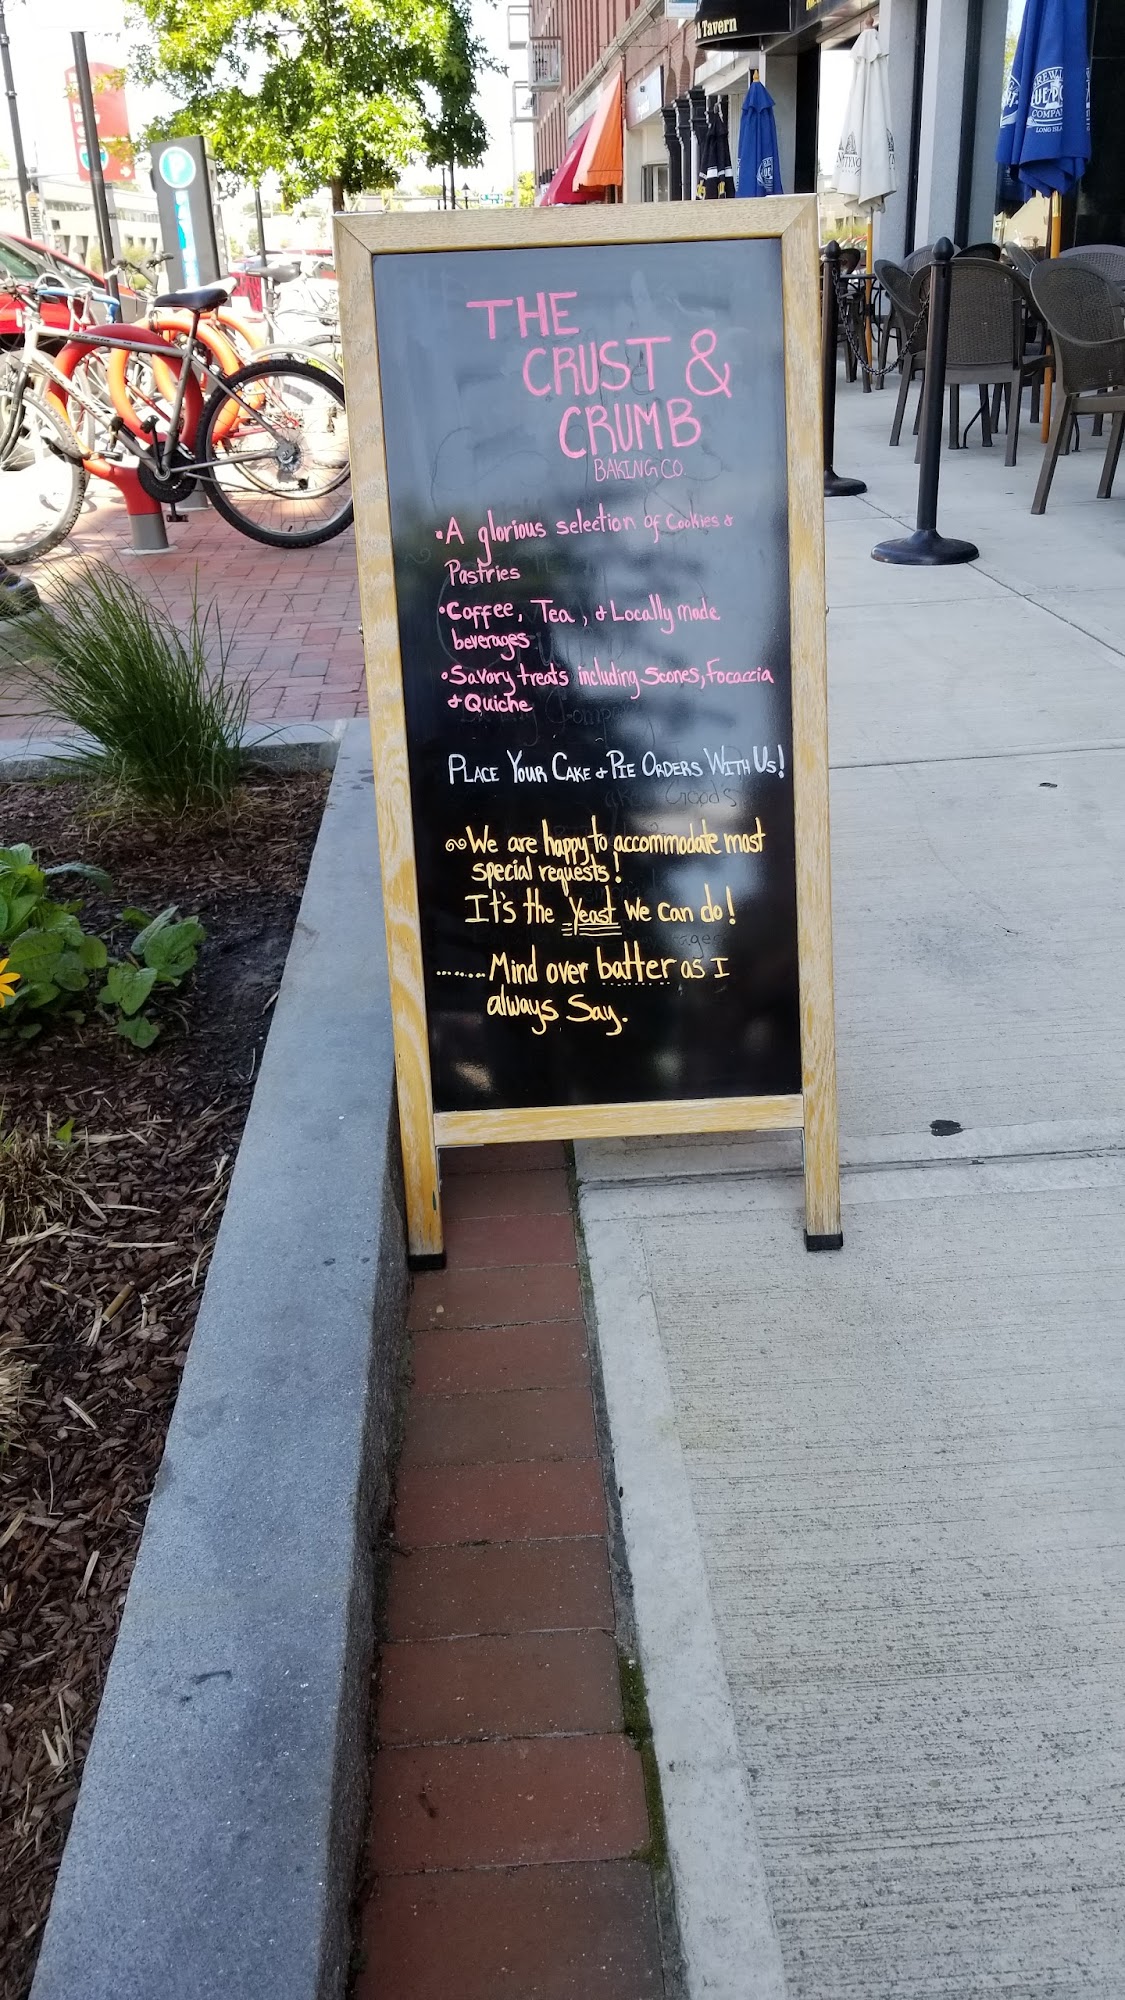 & Tavern
P
THE
CRUST &
CRUMB
BAKING CO.
•A glorious selection of Cookies &
Pastries
•Coffee, Tea, & Locally made
beverages
•Savory treats including Scones, Focaccia
& Quiche
PLACE YOUR CAKE & PIE ORDERS WITH US!
We are happy to accommodate most
special requests!
It's the Yeast We can do!
........Mind over batter as I
always Say.